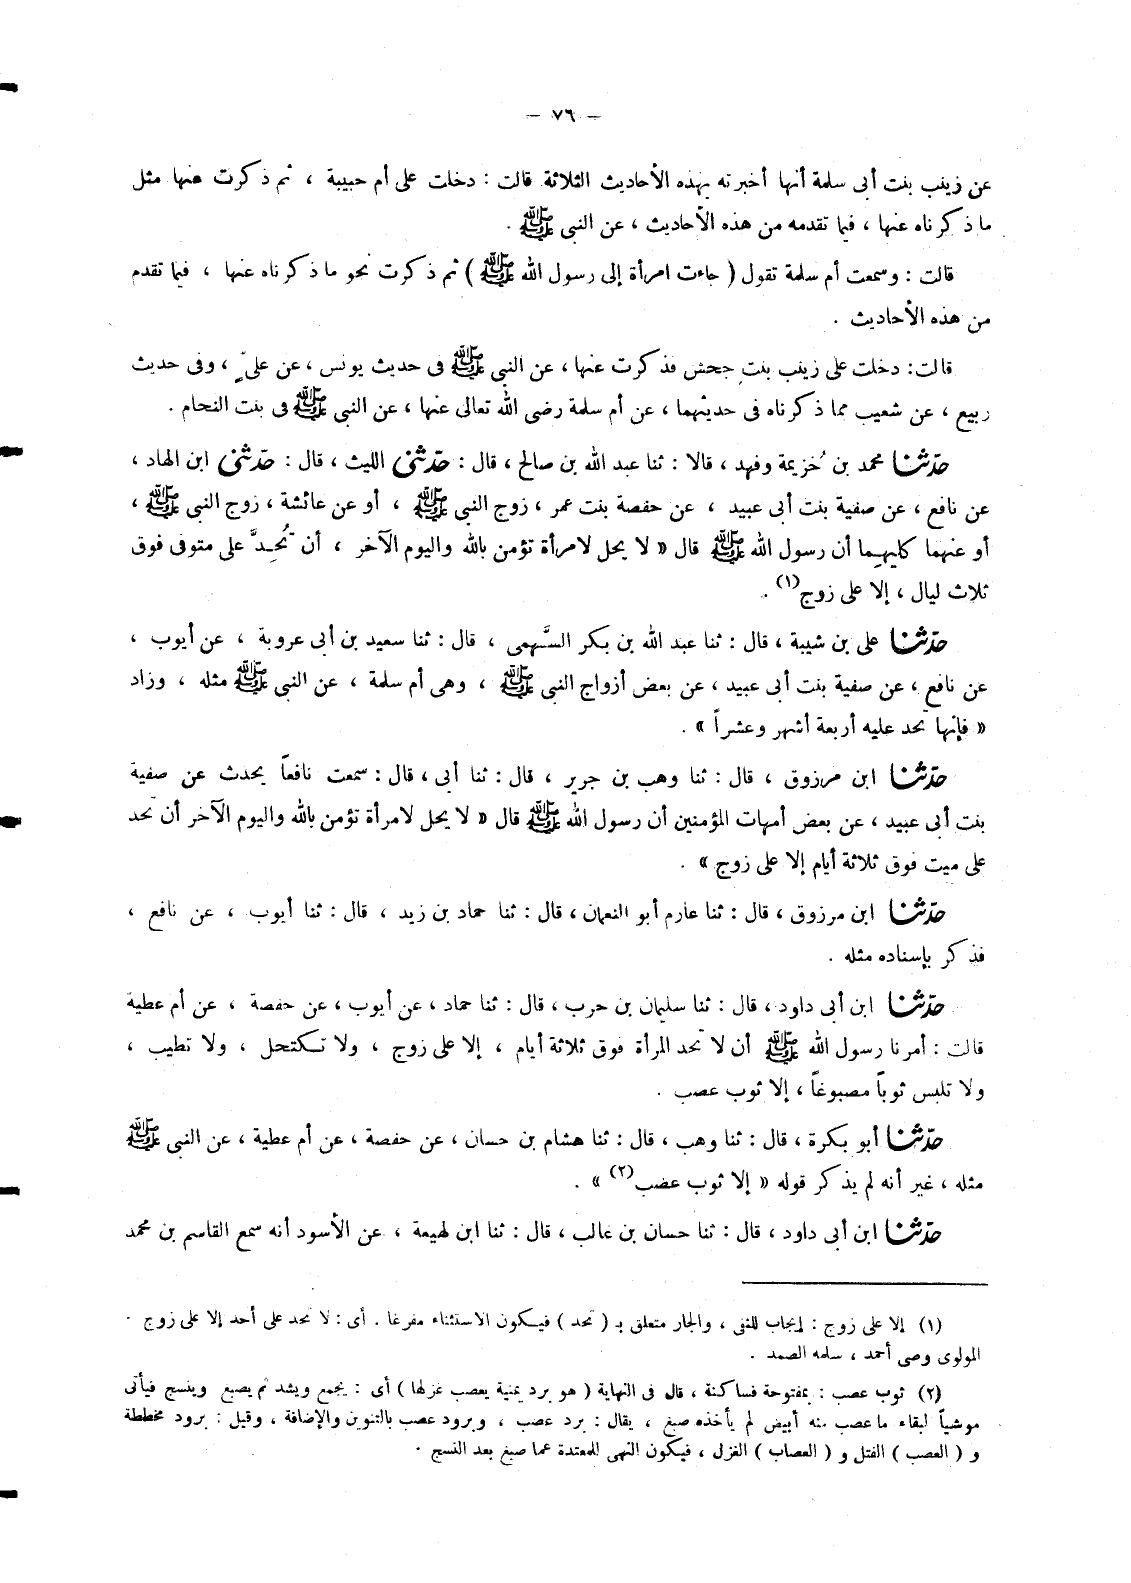 – ٧٦ –
عن زينب بنت أبى سلمة أنها أخبرته بهذه الأحاديث الثلاثة قالت : دخلت على أم حبيبة ، ثم ذكرت عنها مثل
ما ذكرناه عنها ، فيما تقدمه من هذه الأحاديث ، عن النبى ﷺ .
قالت : وسمعت أم سلمة تقول ( جاءت امرأة إلى رسول الله ﷺ ) ثم ذكرت نحو ما ذكرناه عنها ، فيما تقدم
من هذه الأحاديث .
قالت : دخلت على زينب بنت جحش فذكرت عنها ، عن النبى ﷺ فى حديث يونس ، عن علىّ ، وفى حديث
ربيع ، عن شعيب مما ذكرناه فى حديثهما ، عن أم سلمة رضى الله تعالى عنها ، عن النبى ﷺ فى بنت النحام .
حدّثنا محمد بن خُزيمة وفهد ، قالا : ثنا عبد الله بن صالح ، قال : حدّثنى الليث ، قال : حدّثنى ابن الهاد ،
عن نافع ، عن صفية بنت أبى عبيد ، عن حفصة بنت عمر ، زوج النبى ﷺ ، أو عن عائشة ، زوج النبى ﷺ ،
أو عنهما كليهما أن رسول الله ﷺ قال « لا يحل لامرأة تؤمن بالله واليوم الآخر ، أن تُحِدَّ على متوفى فوق
ثلاث ليال ، إلا على زوج(١) .
حدّثنا على بن شيبة ، قال : ثنا عبد الله بن بكر السَّهمى ، قال : ثنا سعيد بن أبى عروبة ، عن أيوب ،
عن نافع ، عن صفية بنت أبى عبيد ، عن بعض أزواج النبى ﷺ ، وهى أم سلمة ، عن النبى ﷺ مثله ، وزاد
« فإنها تحد عليه أربعة أشهر وعشراً » .
حدّثنا ابن مرزوق ، قال : ثنا وهب بن جرير ، قال : ثنا أبى ، قال : سمعت نافعاً يحدث عن صفية
بنت أبى عبيد ، عن بعض أمهات المؤمنين أن رسول الله ﷺ قال « لا يحل لامرأة تؤمن بالله واليوم الآخر أن تحد
على ميت فوق ثلاثة أيام إلا على زوج » .
حدّثنا ابن مرزوق ، قال : ثنا عارم أبو النعمان ، قال : ثنا حماد بن زيد ، قال : ثنا أيوب ، عن نافع ،
فذكر بإسناده مثله .
حدّثنا ابن أبى داود ، قال : ثنا سليمان بن حرب ، قال : ثنا حماد ، عن أيوب ، عن حفصة ، عن أم عطية
قالت : أمرنا رسول الله ﷺ أن لا تحد المرأة فوق ثلاثة أيام ، إلا على زوج ، ولا تكتحل ، ولا تطيب ،
ولا تلبس ثوباً مصبوغاً ، إلا ثوب عصب .
حدّثنا أبو بكرة ، قال : ثنا وهب ، قال : ثنا هشام بن حسان ، عن حفصة ، عن أم عطية ، عن النبى ﷺ
مثله ، غير أنه لم يذكر قوله « إلا ثوب عضب(٢) » .
حدّثنا ابن أبى داود ، قال : ثنا حسان بن غالب ، قال : ثنا ابن لهيعة ، عن الأسود أنه سمع القاسم بن محمد
(١) إلا على زوج : إيجاب للنفى ، والجار متعلق بـ ( تحد ) فيكون الاستثناء مفرغا . أى : لا تحد على أحد إلا على زوج .
المولوى وصى أحمد ، سلمه الصمد .
(٢) ثوب عصب : بمفتوحة فساكنة ، قال فى النهاية ( هو برد يمنية يعصب غزلها ) أى : يجمع ويشد ثم يصبغ وينسج فيأتى
موشياً لبقاء ما عصب منه أبيض لم يأخذه صبغ ، يقال : برد عصب ، وبرود عصب بالتنوين والإضافة ، وقيل : برود مخططة
و ( العصب ) الفتل و ( العصاب ) الغزل ، فيكون النهى للمعتدة عما صبغ بعد النسج .